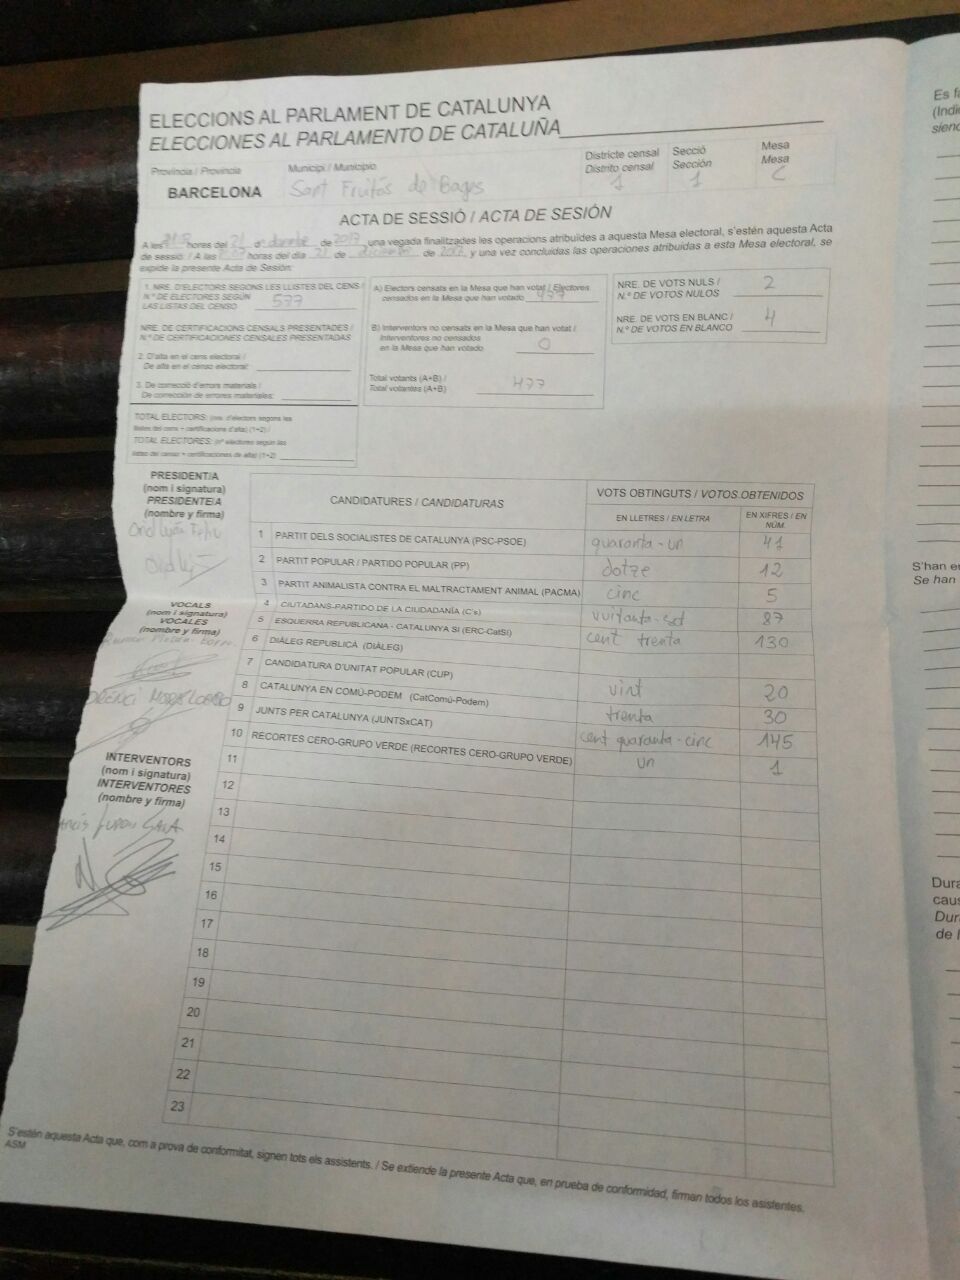 ELECCIONS AL PARLAMENT DE CATALUNYA
ELECCIONES AL PARLAMENTO DE CATALUÑA
Província / Provincia
BARCELONA
Municipi / Municipio
Sant Fruitós de Bages
Districte censal
Distrito censal
1
Secció
Sección
1
Mesa
Mesa
C
ACTA DE SESSIÓ / ACTA DE SESIÓN
A les hores del 21 de desembre de 2017 una vegada finalitzades les operacions atribuïdes a aquesta Mesa electoral, s'estén aquesta Acta
de sessió. / A las horas del día 21 de de 2017 y una vez concluidas las operaciones atribuidas a esta Mesa electoral, se
expide la presente Acta de Sesión:
1. NRE. D'ELECTORS SEGONS LES LLISTES DEL CENS /
N.º DE ELECTORES SEGÚN
LAS LISTAS DEL CENSO 577
NRE. DE CERTIFICACIONS CENSALS PRESENTADES /
N.º DE CERTIFICACIONES CENSALES PRESENTADAS
2. D'alta en el cens electoral /
De alta en el censo electoral:
3. De correcció d'errors materials /
De corrección de errores materiales:
TOTAL ELECTORS: (nre. d'electors segons les
llistes del cens + certificacions d'alta) (1+2) /
TOTAL ELECTORES: (nº electores según las
listas del censo + certificaciones de alta) (1+2)
A) Electors censats en la Mesa que han votat / Electores
censados en la Mesa que han votado 477
B) Interventors no censats en la Mesa que han votat /
Interventores no censados
en la Mesa que han votado 0
Total votants (A+B) /
Total votantes (A+B) 477
NRE. DE VOTS NULS /
N.º DE VOTOS NULOS 2
NRE. DE VOTS EN BLANC /
N.º DE VOTOS EN BLANCO 4
PRESIDENT/A
(nom i signatura)
PRESIDENTE/A
(nombre y firma)
VOCALS
(nom i signatura)
VOCALES
(nombre y firma)
INTERVENTORS
(nom i signatura)
INTERVENTORES
(nombre y firma)
CANDIDATURES / CANDIDATURAS
VOTS OBTINGUTS / VOTOS OBTENIDOS
EN LLETRES / EN LETRA
EN XIFRES / EN
NÚM.
1 PARTIT DELS SOCIALISTES DE CATALUNYA (PSC-PSOE) quaranta-un 41
2 PARTIT POPULAR / PARTIDO POPULAR (PP) dotze 12
3 PARTIT ANIMALISTA CONTRA EL MALTRACTAMENT ANIMAL (PACMA) cinc 5
4 CIUTADANS-PARTIDO DE LA CIUDADANÍA (C's) vuitanta-set 87
5 ESQUERRA REPUBLICANA - CATALUNYA SÍ (ERC-CatSí) cent trenta 130
6 DIÀLEG REPUBLICÀ (DIÀLEG)
7 CANDIDATURA D'UNITAT POPULAR (CUP) vint 20
8 CATALUNYA EN COMÚ-PODEM (CatComú-Podem) trenta 30
9 JUNTS PER CATALUNYA (JUNTSxCAT) cent quaranta-cinc 145
10 RECORTES CERO-GRUPO VERDE (RECORTES CERO-GRUPO VERDE) un 1
11
12
13
14
15
16
17
18
19
20
21
22
23
S'estén aquesta Acta que, com a prova de conformitat, signen tots els assistents. / Se extiende la presente Acta que, en prueba de conformidad, firman todos los asistentes.
ASM
(Indi
S'han e
Se han
Dura
Dur
de l